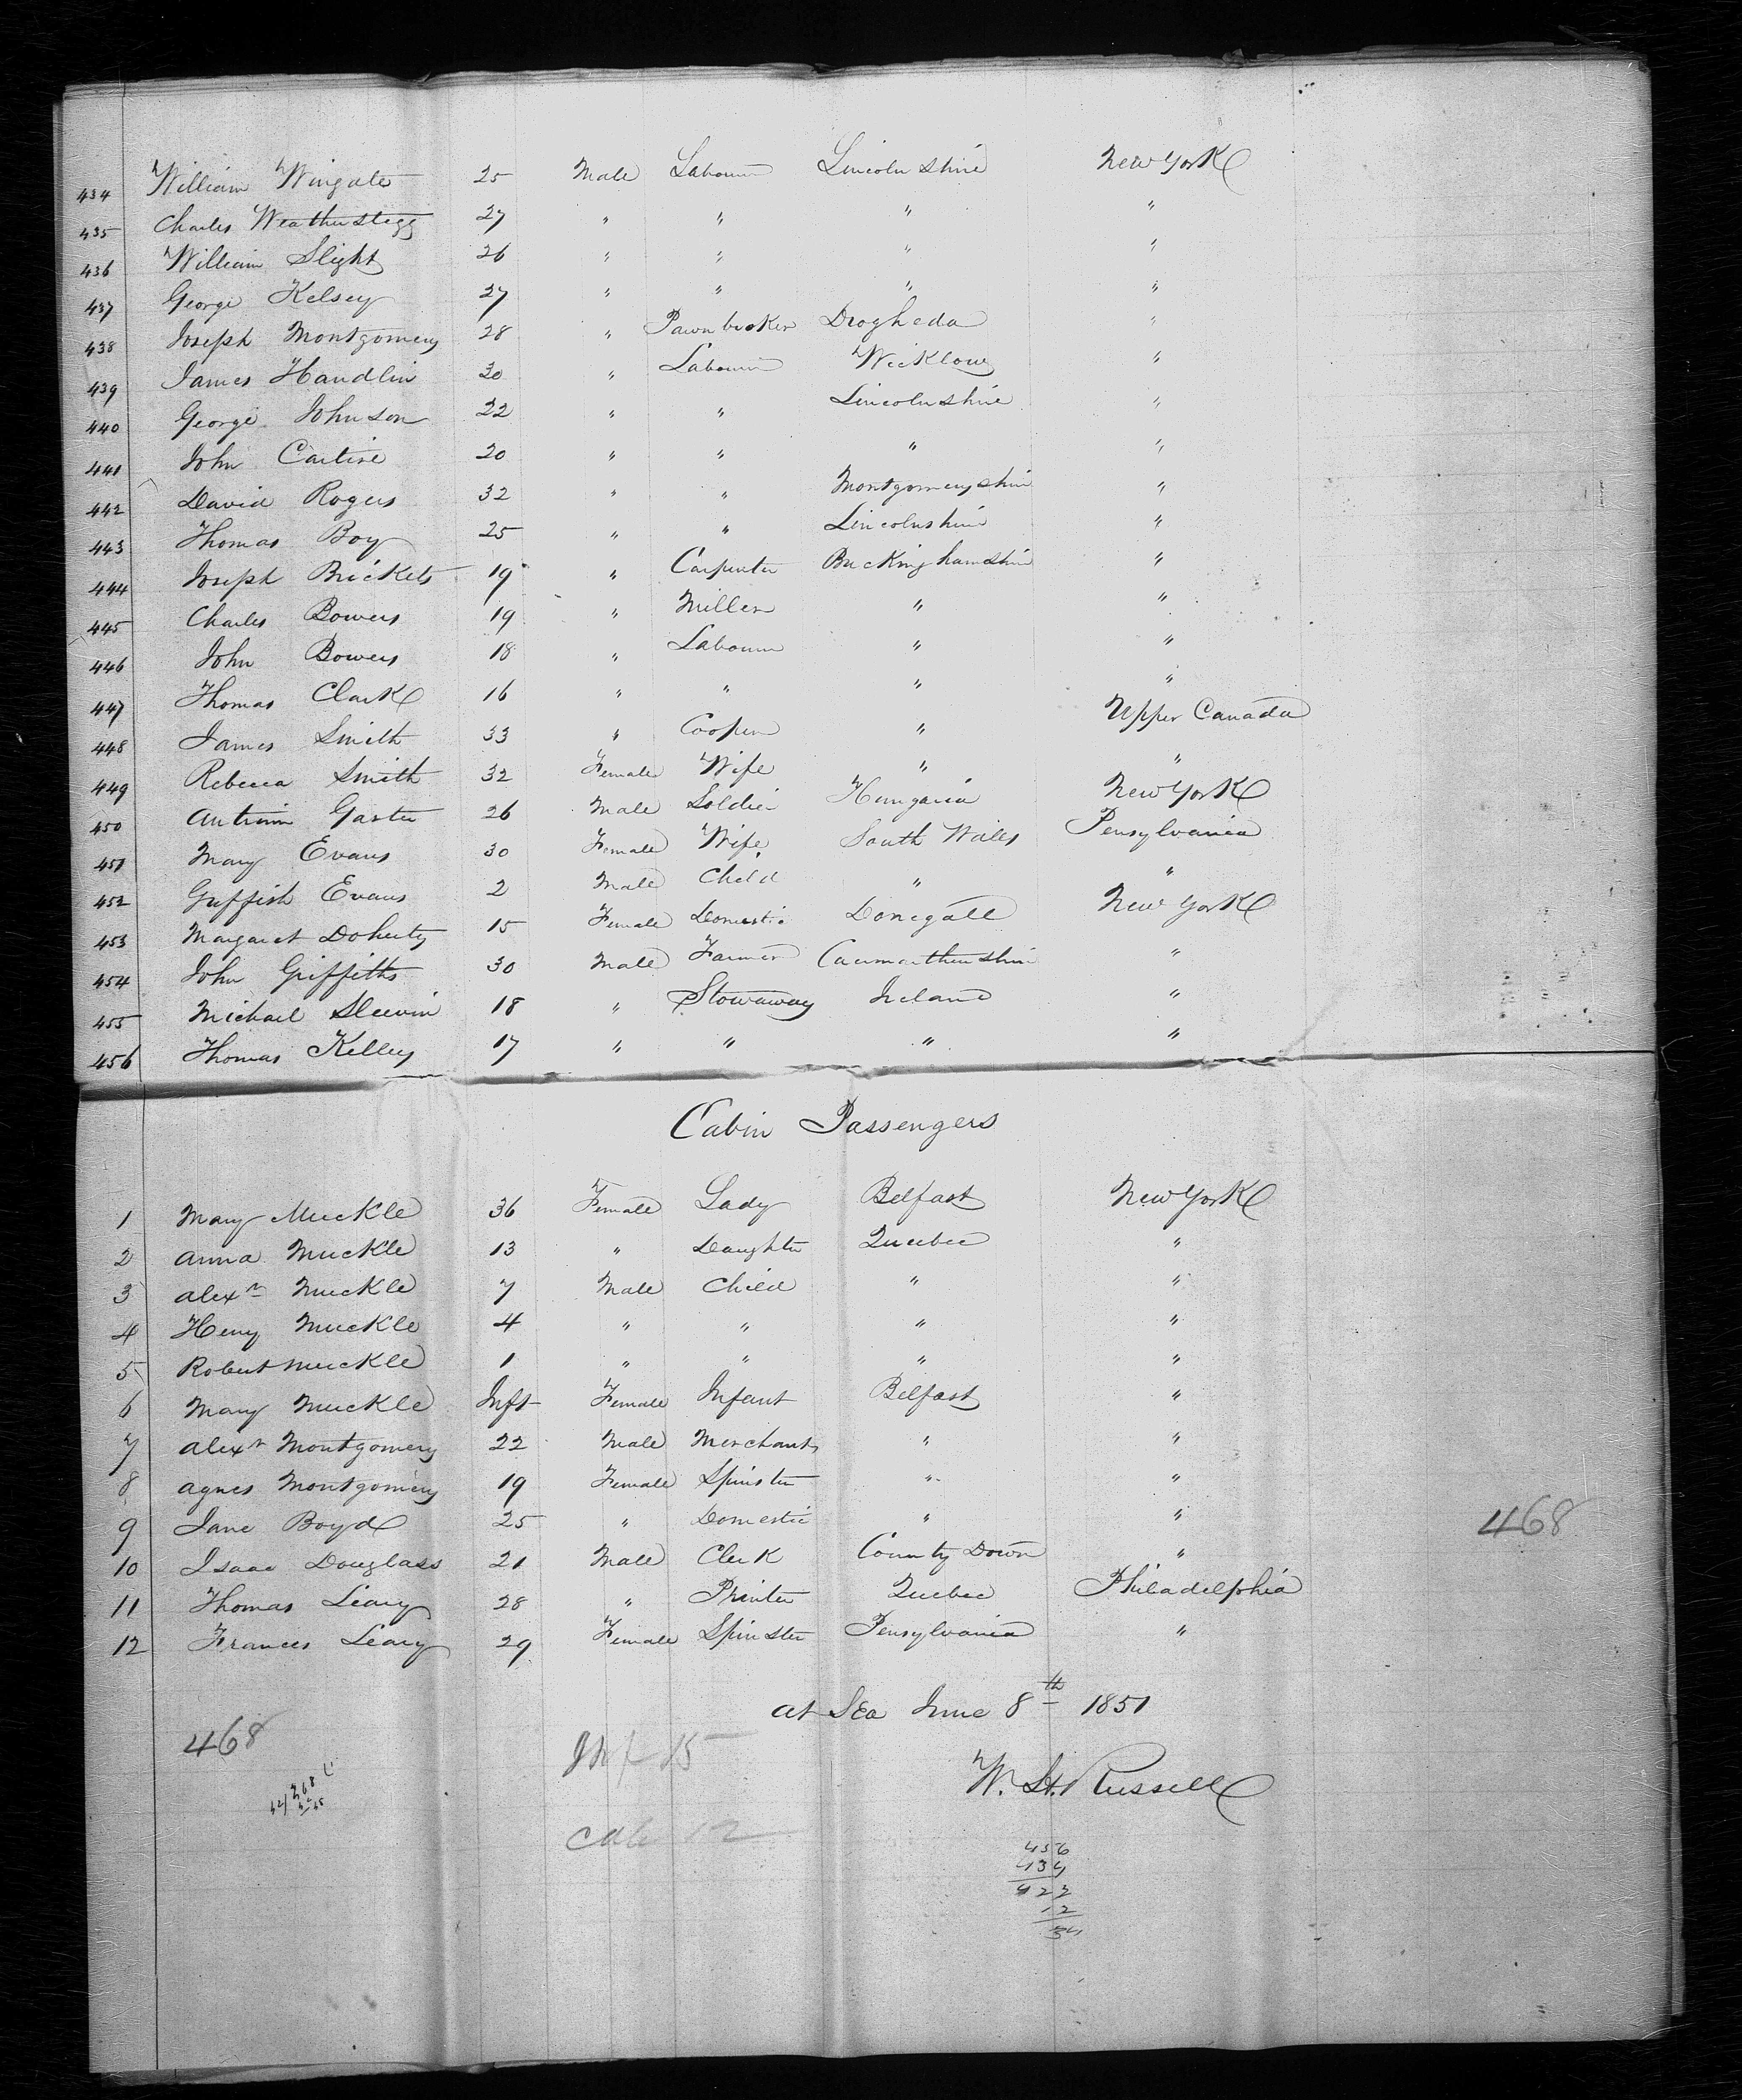 434 William Wingate 25 Male Labourer Lincolnshire New York
435 Charles Weatherstegg 27 " " " "
436 William Slight 26 " " " "
437 George Kelsey 27 " " " "
438 Joseph Montgomery 28 " Pawnbroker Drogheda "
439 James Handlin 30 " Labourer Wicklow "
440 George Johnson 22 " " Lincolnshire "
441 John 20 " " " "
442 David Rogers 32 " " Montgomeryshire "
443 Thomas Boy 25 " " Lincolnshire "
444 Joseph Brickets 19 " Carpenter Buckinghamshire "
445 Charles Bowers 19 " Miller " "
446 John Bowers 18 " Labourer " "
447 Thomas Clark 16 " " " "
448 James Smith 33 " Cooper " Upper Canada
449 Rebecca Smith 32 Female Wife " "
450 Gaster 26 Male Soldier Hungaria New York
451 Mary Evans 30 Female Wife South Wales Pensylvania
452 Guffish Evans 2 Male Child " "
453 Margaret Doherty 15 Female Domestic Donegall New York
454 John Griffiths 30 Male Farmer Caermarthenshire "
455 Michael Slevin 18 " Stowaway Ireland "
456 Thomas Kelley 17 " " " "
Cabin Passengers
1 Mary Muckle 36 Female Lady Belfast New York
2 Anna Muckle 13 " Daughter Quebec "
3 Alexr Muckle 7 Male Child " "
4 Henry Muckle 4 " " " "
5 Robert Muckle 1 " " " "
6 Mary Muckle Inft Female Infant Belfast "
7 Alexr Montgomery 22 Male Merchant " "
8 Agnes Montgomery 19 Female Spinster " "
9 Jane Boyd 25 " Domestic " "
10 Isaac Douglass 21 Male Clerk County Down "
11 Thomas Leary 28 " Printer Quebec Philadelphia
12 Frances Leary 29 Female Spinster Pensylvania "
468
At Sea June 8th 1851
468
Inf 15
W. St. Russell
Cab 12
456
434
422
12
34